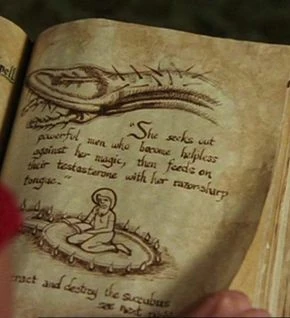 "She seeks out
powerful men who become helpless
against her magic, then feeds on
their testosterone with her razorsharp
tongue..
tract and destroy the succubus
see next